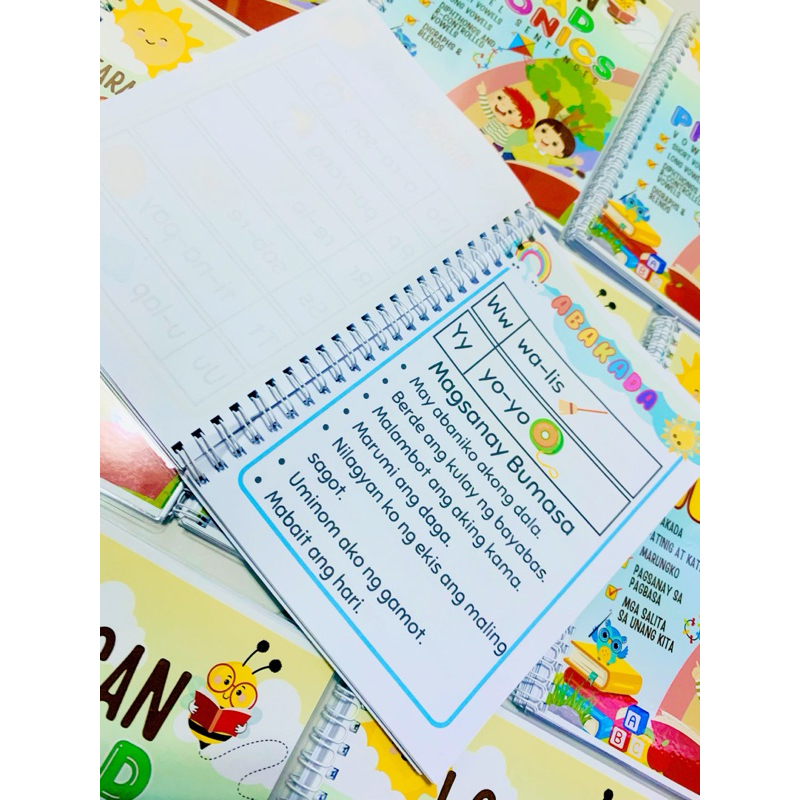 ABAKADA
Ww wa-lis
Yy yo-yo
Magsanay Bumasa
• May abaniko akong dala.
• Berde ang kulay ng bayabas.
• Malambot ang aking kama.
• Marumi ang daga.
• Nilagyan ko ng ekis ang maling
sagot.
• Uminom ako ng gamot.
• Mabait ang hari.
DIPHTHONGS AND
R-CONTROLLED
VOWELS
DIGRAPHS &
BLENDS
SENTENCES
SHORT VOWELS
LONG VOWELS
DIPHTHONGS
R-CONTROLLED
VOWELS
DIGRAPHS &
BLENDS
MARUNGKO
PAGSANAY SA
PAGBASA
MGA SALITA
SA UNANG KITA
A
B
A
B C